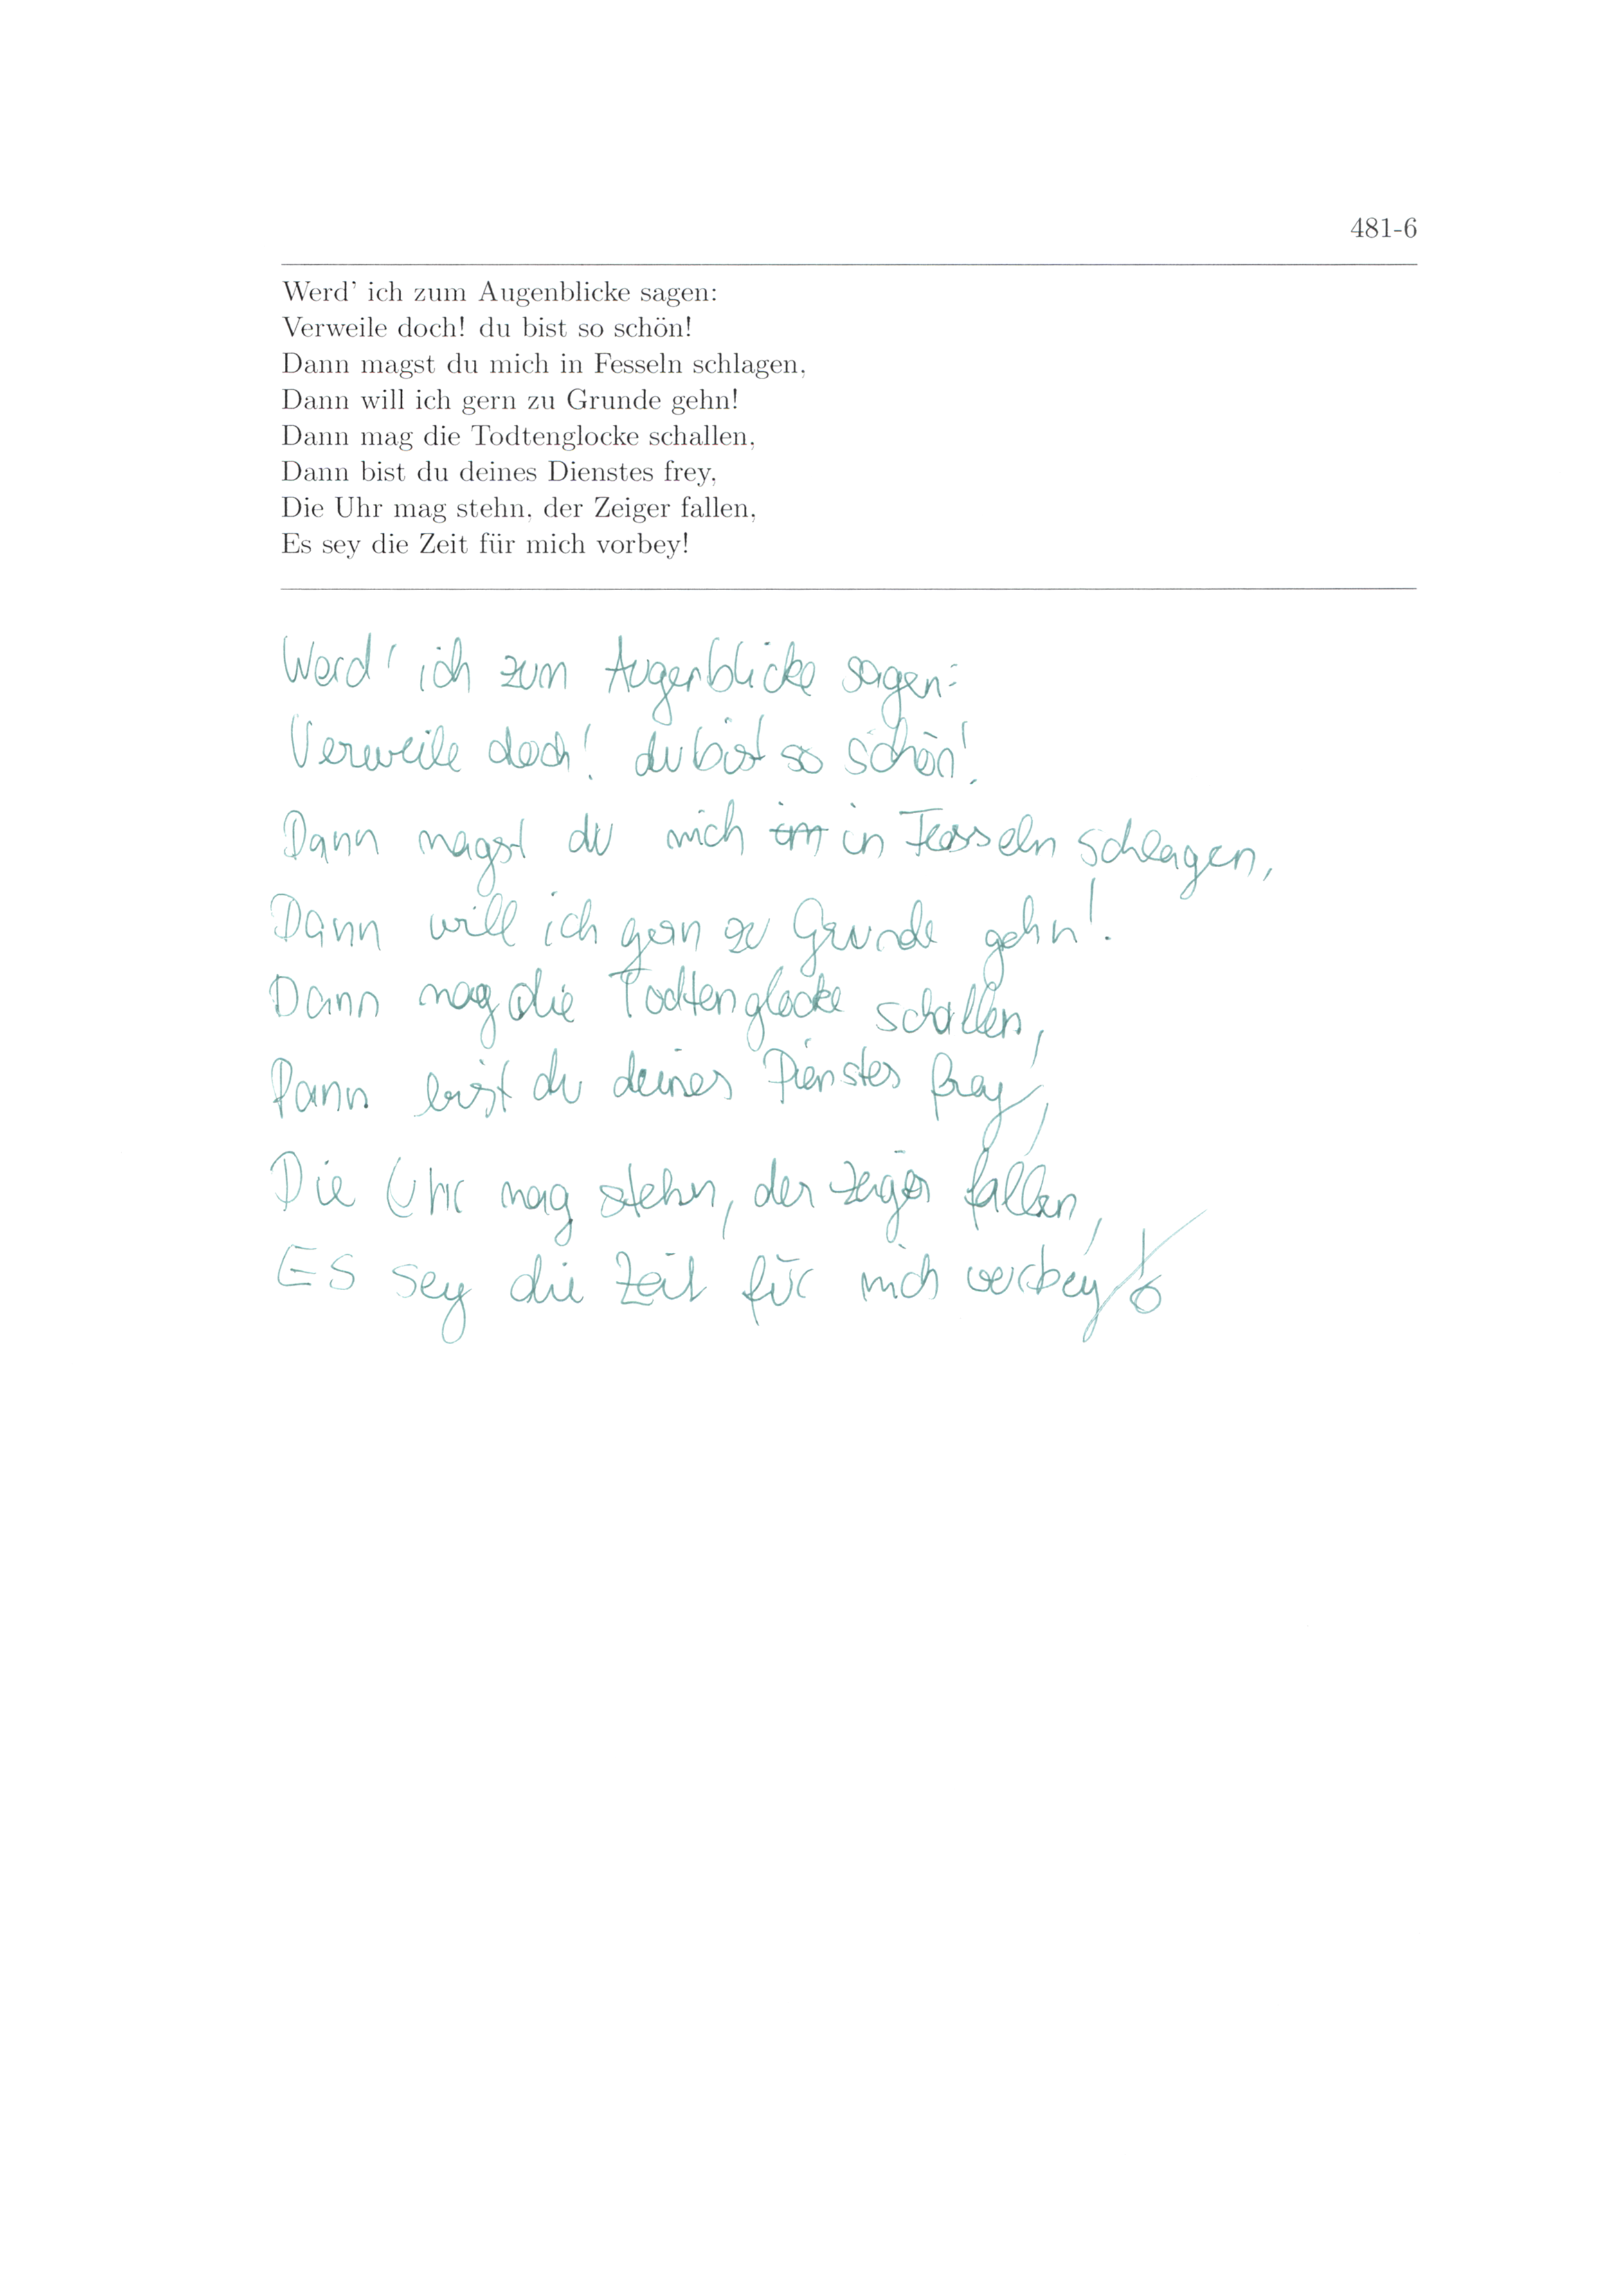 481-6
Werd' ich zum Augenblicke sagen:
Verweile doch! du bist so schön!
Dann magst du mich in Fesseln schlagen,
Dann will ich gern zu Grunde gehn!
Dann mag die Todtenglocke schallen,
Dann bist du deines Dienstes frey,
Die Uhr mag stehn, der Zeiger fallen,
Es sey die Zeit für mich vorbey!
Werd' ich zum Augenblicke sagen:
Verweile doch! du bist so schön!
Dann magst du mich im in Fesseln schlagen,
Dann will ich gern zu Grunde gehn!
Dann mag die Todtenglocke schallen,
Dann bist du deines Dienstes frey,
Die Uhr mag stehn, der Zeiger fallen,
Es sey die Zeit für mich vorbey!